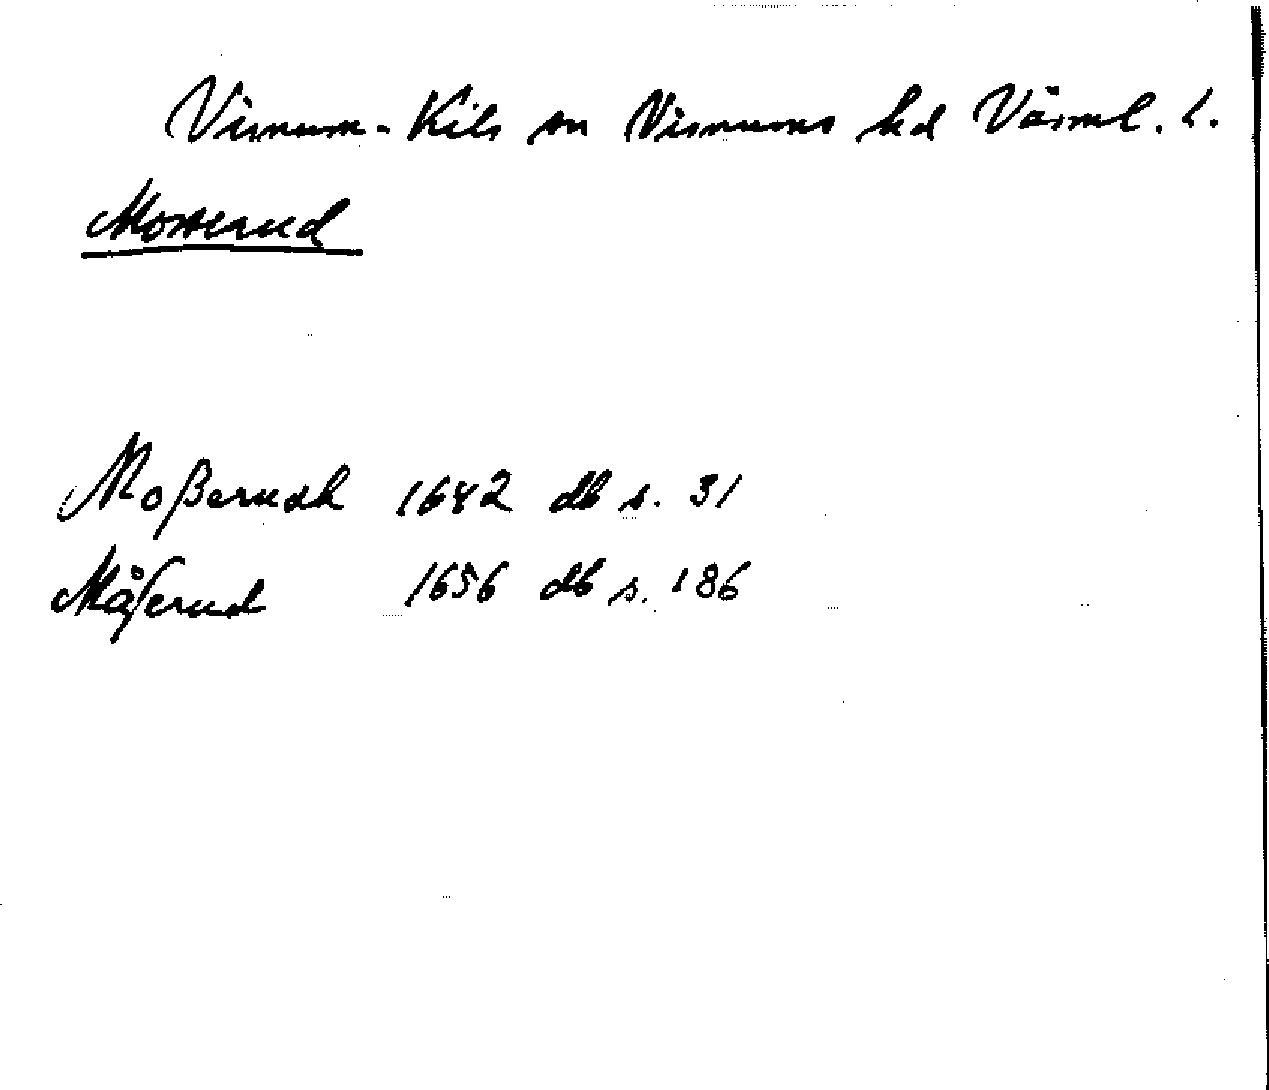 Visnum-Kils sn Visnums hd Värml. l.
Mosserud
Moßerudh 1642 db s. 31
Måſerud 1656 db s. 186